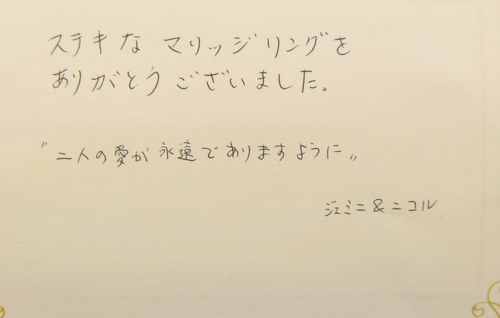 ステキな マリッジリングを
ありがとうございました。
〝二人の愛が永遠でありますように〟
ジェミニ & ニコル